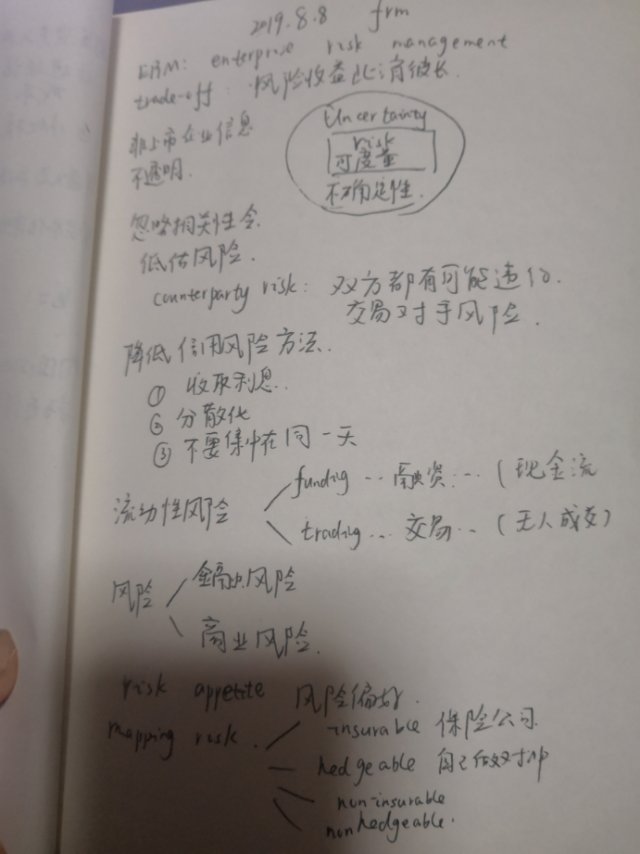 2019.8.8 frm
ERM: enterprise risk management
trade-off: 风险收益此消彼长.
Uncertainty
risk
可度量
不确定性.
非上市企业信息
不透明.
忽略相关性会
低估风险.
counterparty risk: 双方都有可能违约.
交易对手风险.
降低信用风险方法.
① 收取利息.
② 分散化
③ 不要集中在同一天
流动性风险
funding ... 融资 ... (现金流
trading ... 交易 ... (无人成交)
风险
金融风险
商业风险.
risk appetite 风险偏好.
mapping risk.
insurable 保险公司.
hedgeable 自己做对冲
non-insurable
nonhedgeable.